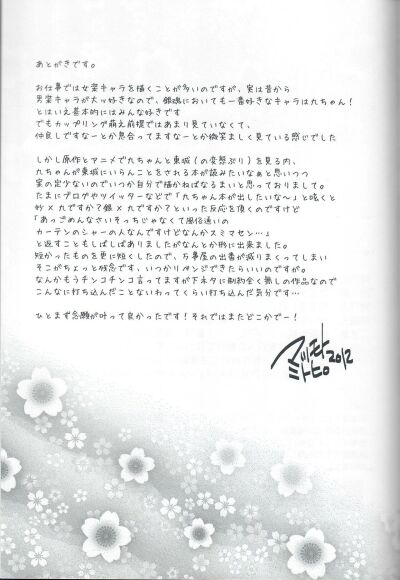 あとがきです。
お仕事では女葉キャラを描くことが多いのですが、実は昔から
男葉キャラが大ッ好きなので、銀魂においても一番好きなキャラは九ちゃん！
とはいえ基本的にはみんな好きです
でもカップリング萌え前提ではあまり見ていなくて、
仲良しですなーとか息合ってますなーとか微笑ましく見ている感じでした
しかし原作とアニメで九ちゃんと東城（の変態ぶり）を見る内、
九ちゃんが東城にいらんことをされる本が読みたいなぁと思いつつ
実の定少ないのでいつか自分で描かねばなるまいと思っておりまして。
たまにブログやツイッターなどで「九ちゃん本が出したいな～」と呟くと
妙×九ですか？銀×九ですか？といった反応を頂くのですけど
「あっごめんなさいそっちじゃなくて風俗通いの
カーテンのシャーの人なんですけどなんかスミマセン…」
と返すこともしばしばありましたがなんとか形に出来ました。
短かったものを更に短くしたので、万事屋の出番が減りまくってしまい
そこがちょっと残念です、いつかリベンジできたらいいのですが。
なんかもうチンコチンコ言ってますが下ネタに制約全く無しの作品なので
こんなに打ち込んだことないわってくらい打ち込んだ気分です…
ひとまず念願が叶って良かったです！それではまたどこかでー！
マツモト
ミトヒロ
2012